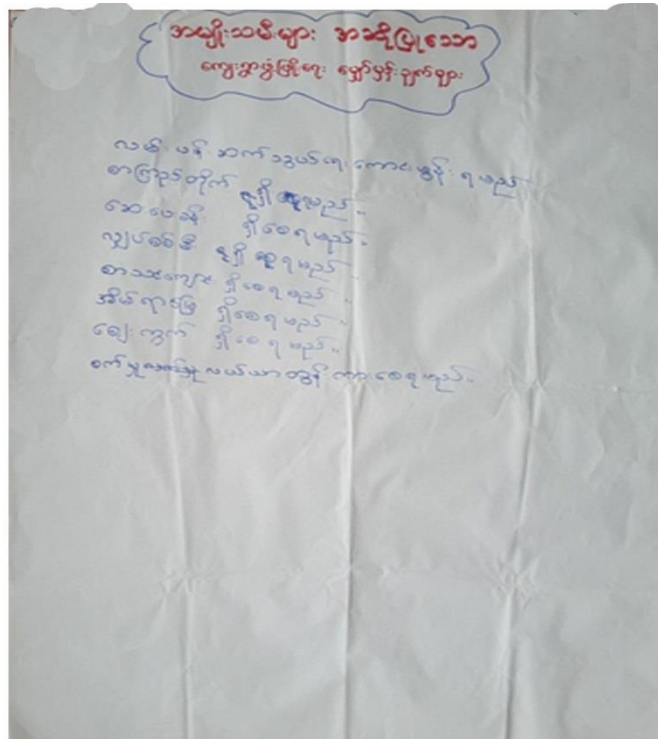 အမျိုးသမီးများ အဆိုပြုသော
ကျေးရွာဖွံ့ဖြိုးရေး မျှော်မှန်းချက်များ
လမ်းပန်းဆက်သွယ်ရေးကောင်းမွန်ရမည်
စာကြည့်တိုက် ရှိရမည်။
ဆေးပေးခန်း ရှိစေရမည်။
လျှပ်စစ်မီး ရှိရမည်။
စာသင်ကျောင်း ရှိစေရမည်။
အိမ်ရာမြေ ရှိစေရမည်။
ဈေးကွက် ရှိစေရမည်။
စက်မှုလယ်ယာထွန်ကားစေရမည်။